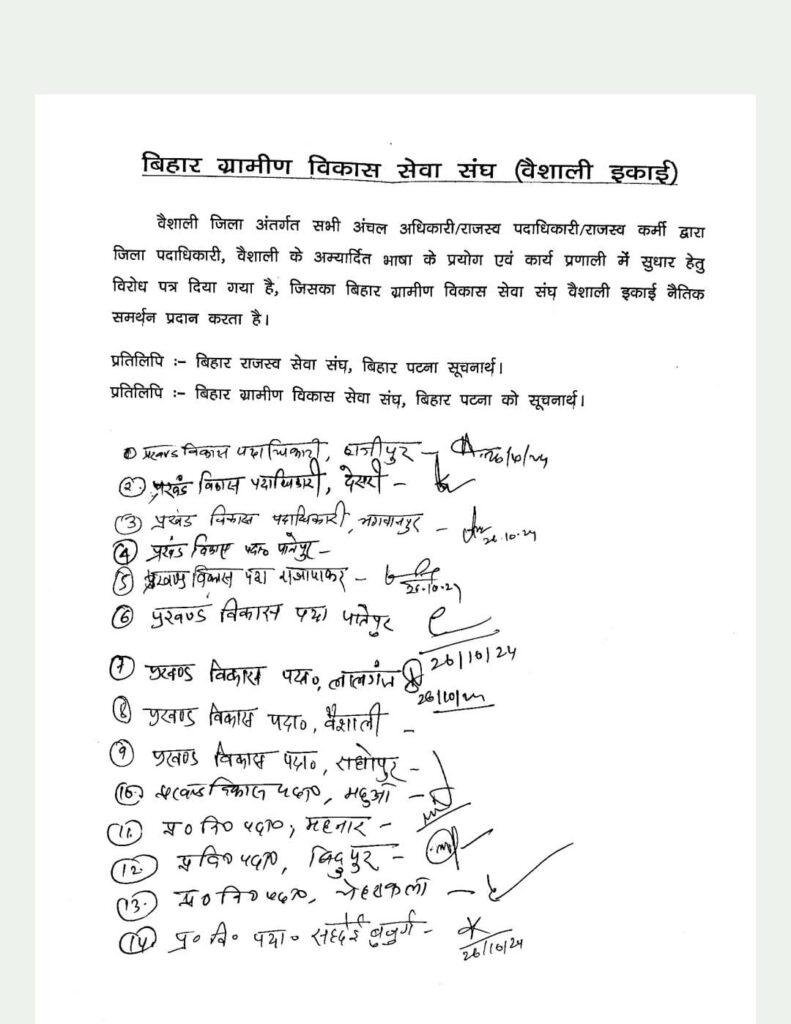 बिहार ग्रामीण विकास सेवा संघ (वैशाली इकाई)
वैशाली जिला अंतर्गत सभी अंचल अधिकारी/राजस्व पदाधिकारी/राजस्व कर्मी द्वारा
जिला पदाधिकारी, वैशाली के अम्यार्दित भाषा के प्रयोग एवं कार्य प्रणाली में सुधार हेतु
विरोध पत्र दिया गया है, जिसका बिहार ग्रामीण विकास सेवा संघ वैशाली इकाई नैतिक
समर्थन प्रदान करता है।
प्रतिलिपि :– बिहार राजस्व सेवा संघ, बिहार पटना सूचनार्थ।
प्रतिलिपि :– बिहार ग्रामीण विकास सेवा संघ, बिहार पटना को सूचनार्थ।
① प्रखण्ड विकास पदाधिकारी, हाजीपुर – 26/10/24
② प्रखंड विकास पदाधिकारी, देसरी –
③ प्रखंड विकास पदाधिकारी, भगवानपुर – 26.10.24
④ प्रखंड विकास पदा० पातेपुर –
⑤ प्रखण्ड विकास पदा राजापाकर – 26.10.24
⑥ प्रखण्ड विकास पदा पातेपुर
26/10/24
⑦ प्रखण्ड विकास पदा०, लालगंज
26/10/24
⑧ प्रखण्ड विकास पदा०, वैशाली –
⑨ प्रखण्ड विकास पदा०, –
⑩ प्रखण्ड विकास पदा०, महुआ –
⑪ प्र० वि० पदा०, महनार –
⑫ प्र वि० पदा०, बिदुपुर –
⑬ प्र० वि० पदा०, चेहराकलाँ –
⑭ प्र० वि० पदा० सहदेई बुजुर्ग –
26/10/24